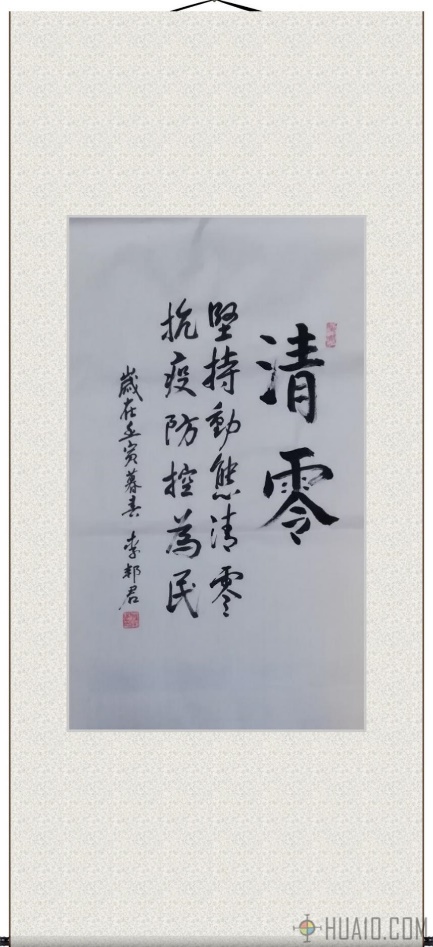 清零
堅持動態清零
抗疫防控為民
歲在壬寅暮春 李邦君
HUAIO.COM